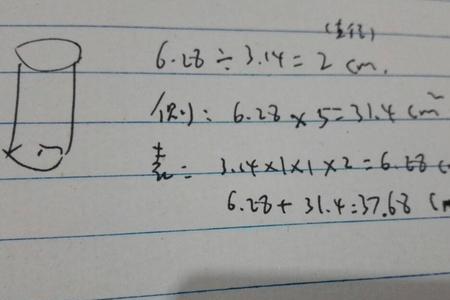 (直径)
6.28÷3.14=2 cm.
侧: 6.28×5=31.4 cm²
表: 3.14×1×1×2=6.28 c
6.28+31.4=37.68 (cm